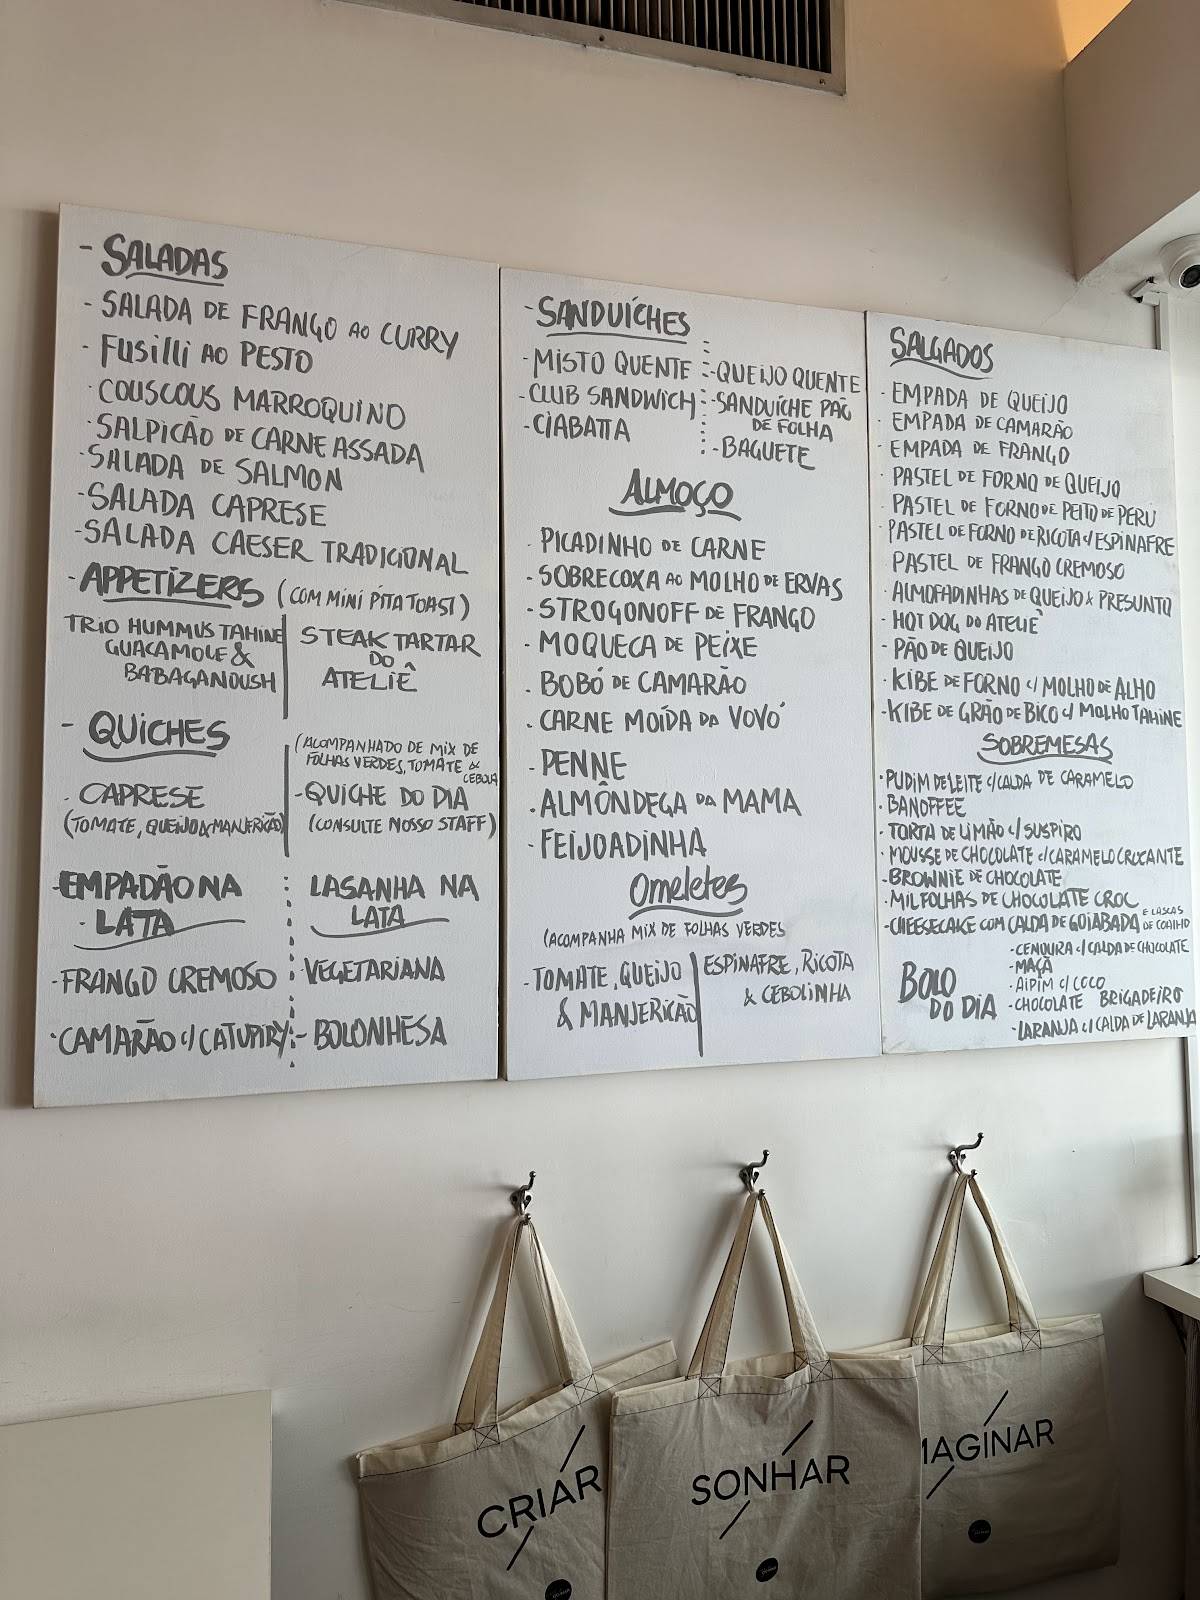 - SALADAS
- SALADA DE FRANGO AO CURRY
- FUSILLI AO PESTO
- COUSCOUS MARROQUINO
- SALPICÃO DE CARNE ASSADA
- SALADA DE SALMON
- SALADA CAPRESE
- SALADA CAESER TRADICIONAL
- APPETIZERS (COM MINI PITA TOAST)
TRIO HUMMUS TAHINE
GUACAMOLE &
BABAGANOUSH
STEAK TARTAR
DO
ATELIÊ
- QUICHES
(ACOMPANHADO DE MIX DE
FOLHAS VERDES, TOMATE &
CEBOLA
- CAPRESE
(TOMATE, QUEIJO & MANJERICÃO)
- QUICHE DO DIA
(CONSULTE NOSSO STAFF)
- EMPADÃO NA
- LATA
- FRANGO CREMOSO
- CAMARÃO C/ CATUPIRY
LASANHA NA
LATA
- VEGETARIANA
- BOLONHESA
- SANDUÍCHES
- MISTO QUENTE
- CLUB SANDWICH
- CIABATTA
- QUEIJO QUENTE
- SANDUÍCHE PÃO
DE FOLHA
- BAGUETE
ALMOÇO
- PICADINHO DE CARNE
- SOBRECOXA AO MOLHO DE ERVAS
- STROGONOFF DE FRANGO
- MOQUECA DE PEIXE
- BOBÓ DE CAMARÃO
- CARNE MOÍDA DA VOVÓ
- PENNE
- ALMÔNDEGA DA MAMA
- FEIJOADINHA
OMELETES
(ACOMPANHA MIX DE FOLHAS VERDES
- TOMATE, QUEIJO
& MANJERICÃO
ESPINAFRE, RICOTA
& CEBOLINHA
SALGADOS
- EMPADA DE QUEIJO
- EMPADA DE CAMARÃO
- EMPADA DE FRANGO
- PASTEL DE FORNO DE QUEIJO
- PASTEL DE FORNO DE PEITO DE PERU
- PASTEL DE FORNO DE RICOTA C/ ESPINAFRE
PASTEL DE FRANGO CREMOSO
- ALMOFADINHAS DE QUEIJO & PRESUNTO
- HOT DOG DO ATELIÊ
- PÃO DE QUEIJO
- KIBE DE FORNO C/ MOLHO DE ALHO
- KIBE DE GRÃO DE BICO C/ MOLHO TAHINE
SOBREMESAS
- PUDIM DE LEITE C/ CALDA DE CARAMELO
- BANOFFEE
- TORTA DE LIMÃO C/ SUSPIRO
- MOUSSE DE CHOCOLATE C/ CARAMELO CROCANTE
- BROWNIE DE CHOCOLATE
- MIL FOLHAS DE CHOCOLATE CROC
- CHEESECAKE COM CALDA DE GOIABADA E LASCAS
DE COALHO
BOLO
DO DIA
- CENOURA C/ CALDA DE CHOCOLATE
- MAÇÃ
- AIPIM C/ COCO
- CHOCOLATE BRIGADEIRO
- LARANJA C/ CALDA DE LARANJA
CRIAR
SONHAR
MAGINAR